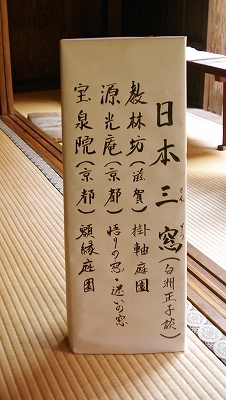 日本三窓(白洲正子談)
さん そう
教林坊(滋賀)掛軸庭園
源光庵(京都)悟りの窓・迷いの窓
宝泉院(京都)額縁庭園